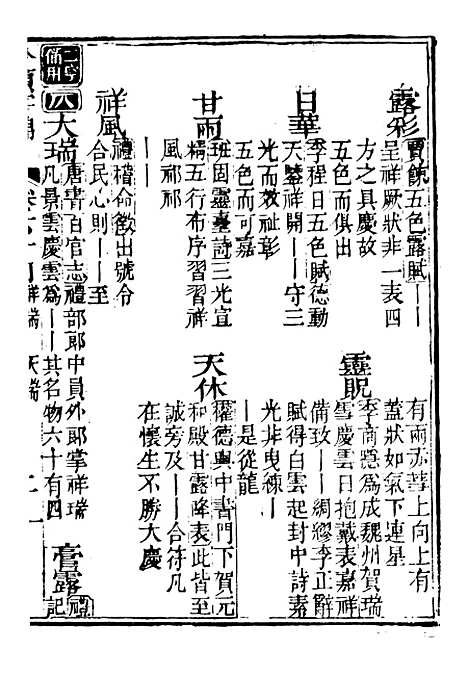 露彩賈餗五色露賦｜｜
呈祥厥狀非一表四
方之具慶故
五色而俱出
日華李程日五色賦德動
天鑒祥開｜｜守三
光而效祉彰
五色而可嘉
甘雨班固靈臺詩三光宣
精五行布序習習祥
風祁祁
｜｜
祥風禮稽命徵出號令
合民心則｜｜至
有兩赤彗上向上有
蓋狀如氣下連星
靈貺李商隱爲成魏州賀瑞
雪慶雲日抱戴表嘉祥
備致｜｜綢繆李正辭
賦得白雲起封中詩素
光非曳練｜
｜是從龍
天休權德輿中書門下賀元
和殿甘露降表此皆至
誠旁及｜｜合符凡
在懷生不勝大慶
二字備用
八大瑞唐書百官志禮部郎中員外郎掌祥瑞
凡景雲慶雲爲｜｜其名物六十有四
膏露禮記
祥瑞 天瑞